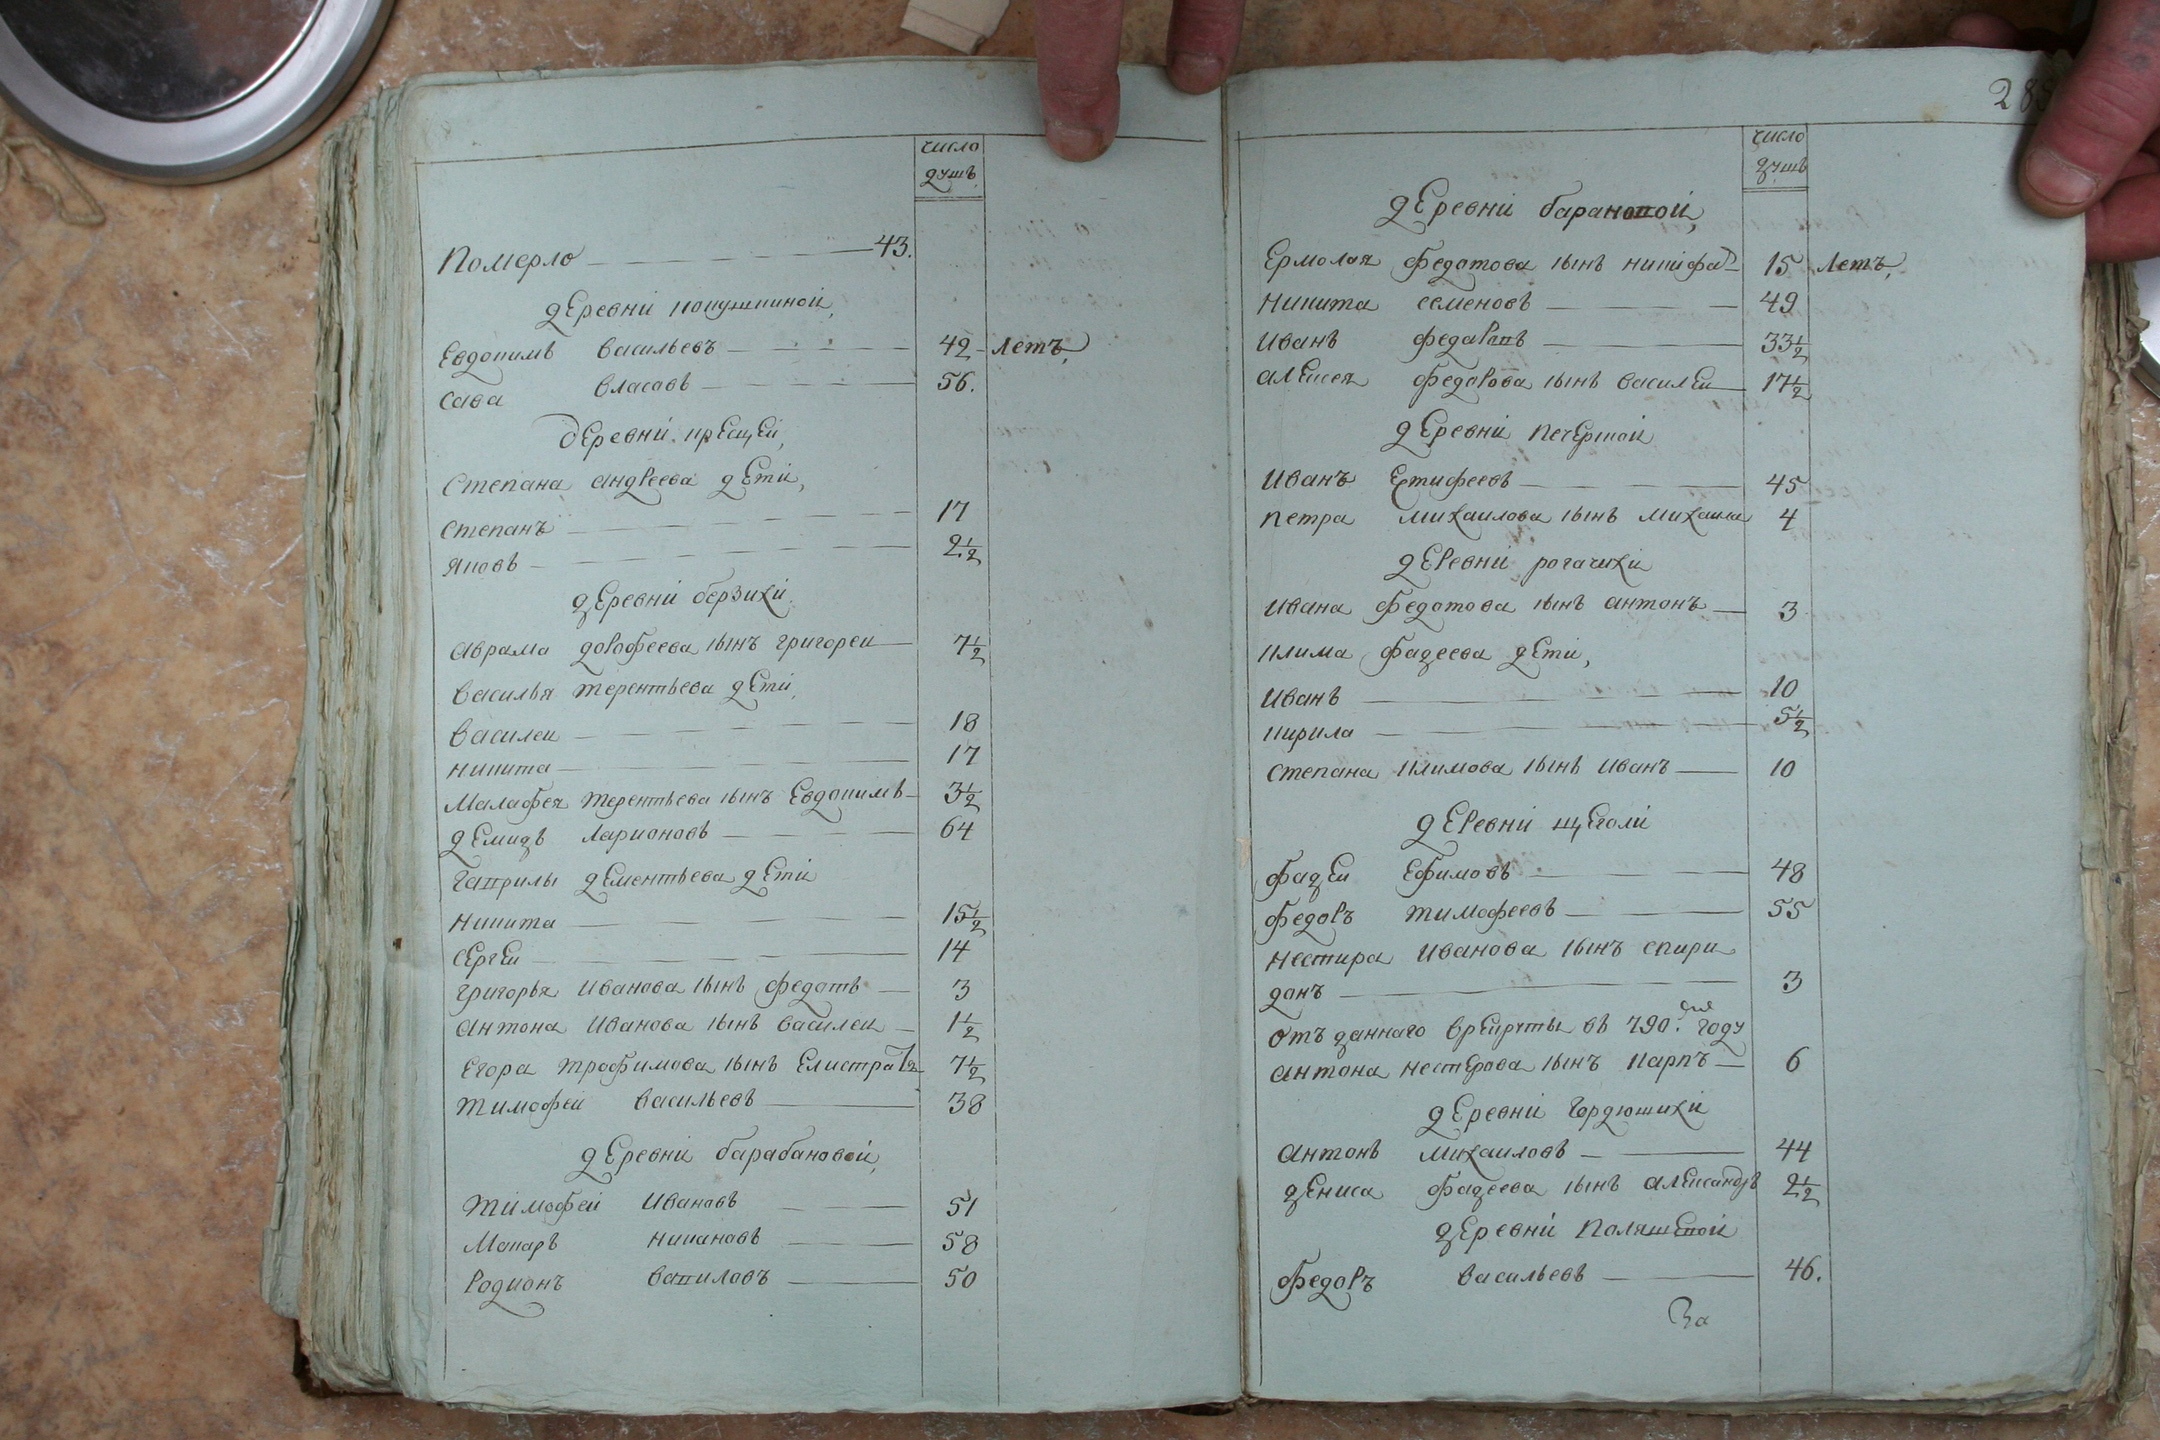 число
душъ
Померло 43.
деревни кокушкиной
Евдокимъ васильевъ 42 летъ
Сава власовъ 56.
деревни крещеи
Степана андреева дети
Степанъ 17
Яковъ 2½
деревни берзихи
аврама дорофеева сынъ григореи 7½
василья терентьева дети
василеи 18
никита 17
Малафея терентьева сынъ Евдокимъ 3½
демидъ ларионовъ 64
гаврилы дементьева дети
никита 15½
сергеи 14
григорья иванова сынъ федотъ 3
антона иванова сынъ василеи 1½
Егора трофимова сынъ Елистратъ 7½
тимофеи васильевъ 38
деревни барабановой
тимофеи ивановъ 51
Макаръ никановъ 58
родионъ вавиловъ 50
число
душъ
деревни барановой
Ермолая федотова сынъ никифоръ 15 летъ
никита семеновъ 49
иванъ федаровъ 33½
алексея федорова сынъ василеи 17½
деревни печерской
иванъ Ептифеевъ 45
петра михаилова сынъ михаила 4
деревни рогачихи
ивана федотова сынъ антонъ 3
клима фадеева дети
иванъ 10
кирила 5½
степана климова сынъ иванъ 10
деревни щеголи
фадеи Ефимовъ 48
федоръ тимофеевъ 55
нестира иванова сынъ спири
донъ 3
отъ даннаго врекруты въ 790. году
антона нестерова сынъ карпъ 6
деревни гордюшихи
антонъ михаиловъ 44
дениса фадеева сынъ александръ 2½
деревни Поляшевой
федоръ васильевъ 46.
За